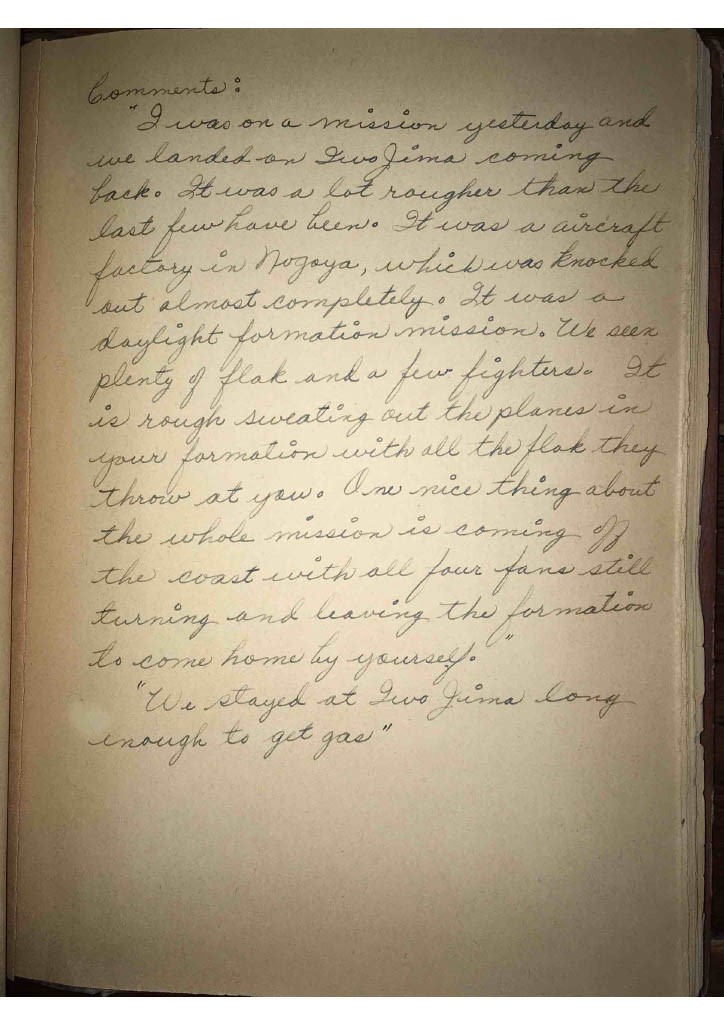 Comments:
"I was on a mission yesterday and
we landed on Iwo Jima coming
back. It was a lot rougher than the
last few have been. It was a aircraft
factory in Nogoya, which was knocked
out almost completely. It was a
daylight formation mission. We seen
plenty of flak and a few fighters. It
is rough sweating out the planes in
your formation with all the flak they
throw at you. One nice thing about
the whole mission is coming off
the coast with all four fans still
turning and leaving the formation
to come home by yourself."
"We stayed at Iwo Jima long
enough to get gas"